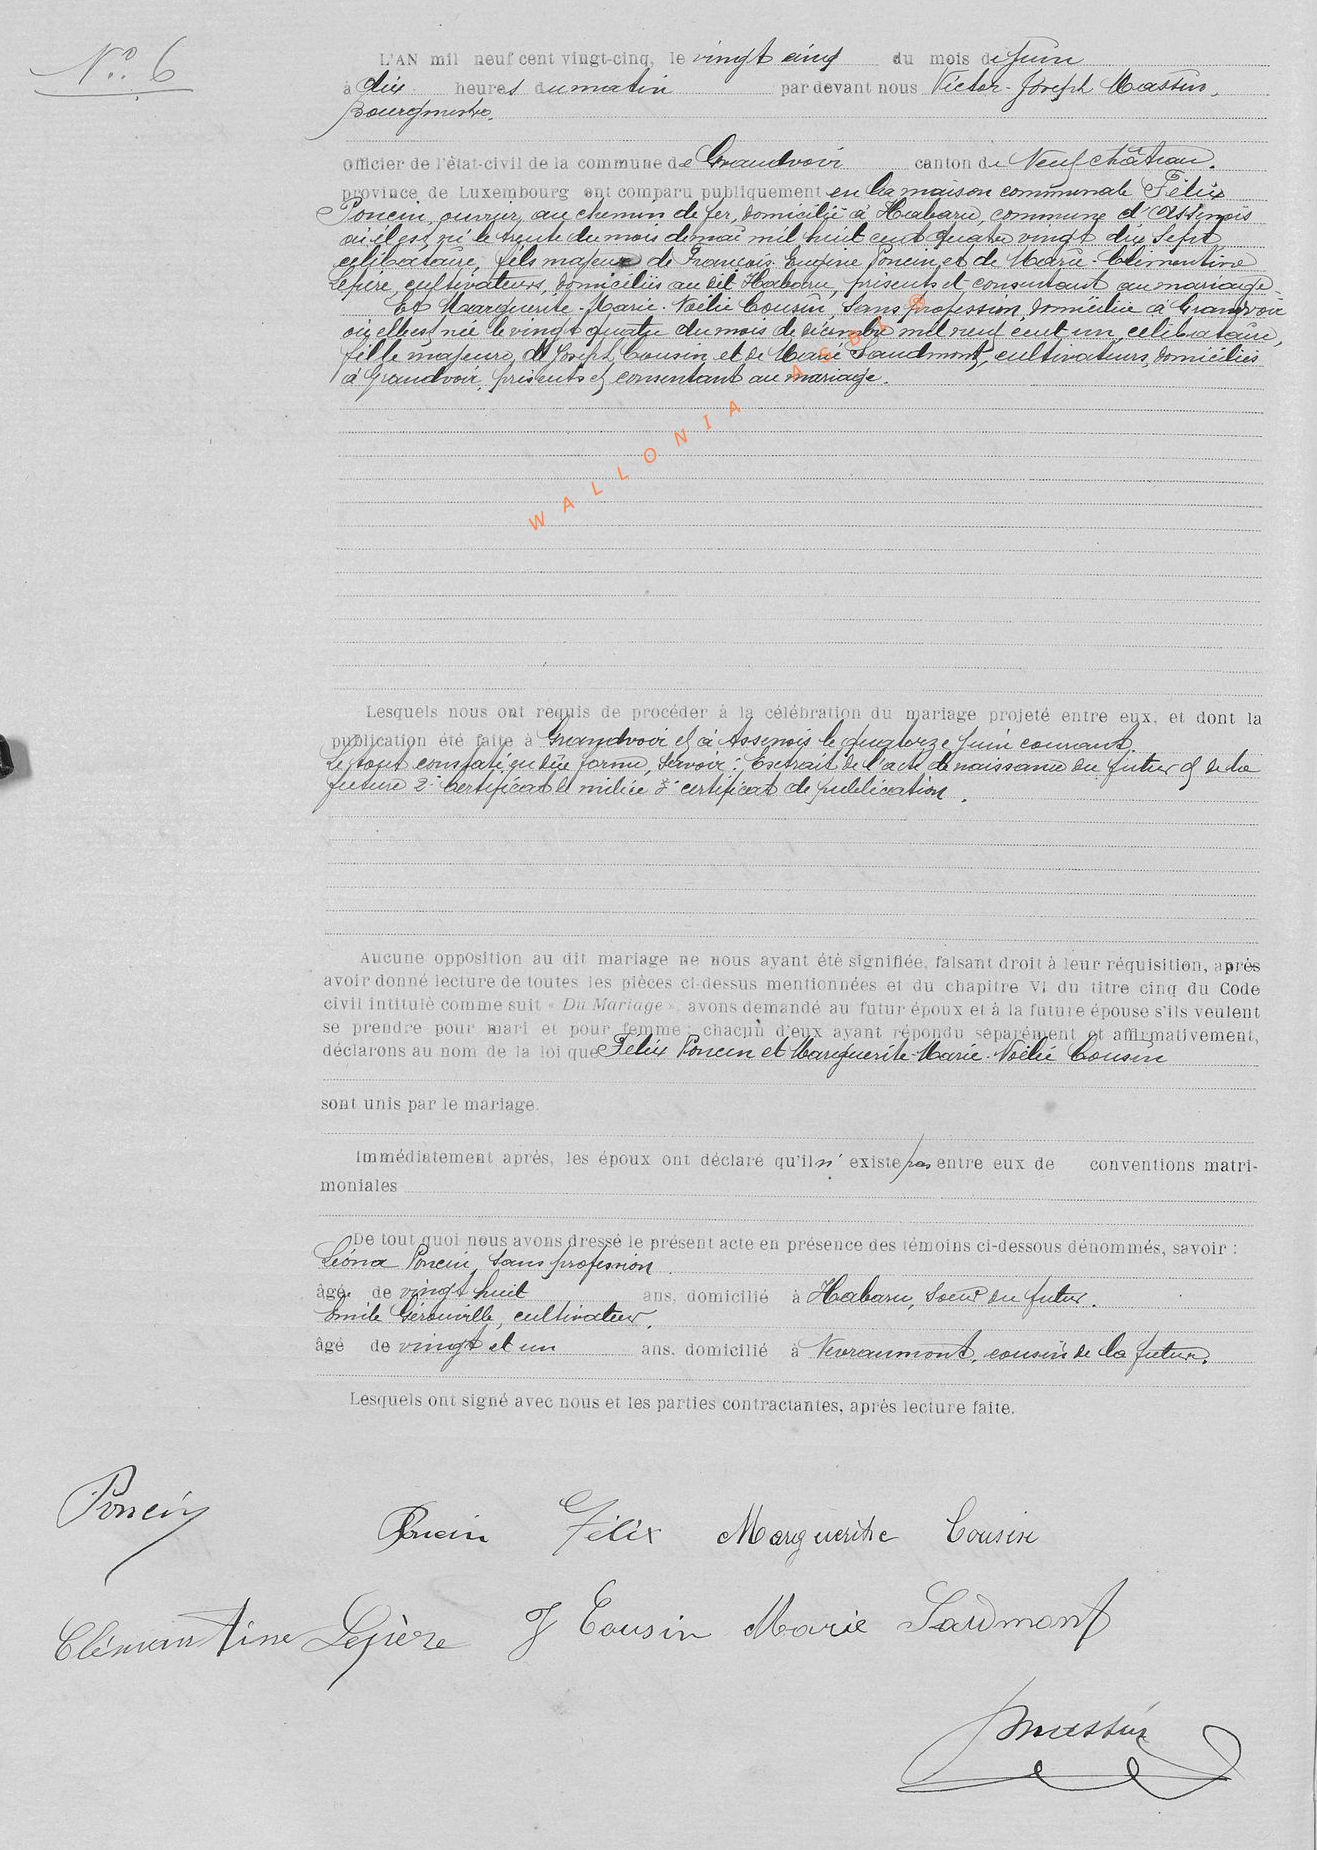 N° 6
L'AN mil neuf cent vingt-cinq, le vingt cinq du mois de Juin
à dix heures du matin par devant nous Victor-Joseph Massin,
Bourgmestre,
Officier de l'état-civil de la commune de Grandvoir canton de Neufchâteau,
province de Luxembourg ont comparu publiquement en la maison communale Félix
Poncin, ouvrier au chemin de fer, domicilié à Habaru, commune d'Assenois
où il est né le trente du mois de mai mil huit cent quatre vingt dix sept
célibataire, fils majeur de François Eugène Poncin et de Marie-Clémentine
Lepère, cultivateurs, domiciliés au dit Habaru, présents et consentant au mariage.
Et Marguerite-Marie-Noëlie Cousin, sans profession, domiciliée à Grandvoir
où elle est née le vingt quatre du mois de décembre mil neuf cent un, célibataire,
fille majeure, de Joseph Cousin et de Marie Saudmont, cultivateurs, domiciliés
à Grandvoir, présents et consentant au mariage.
WALLONIA ASBL ®
Lesquels nous ont requis de procéder à la célébration du mariage projeté entre eux, et dont la
publication été faite à Grandvoir et à Assenois le quatorze Juin courant.
Le tout constaté en due forme, savoir : Extrait de l'acte de naissance du futur et de la
future 2° Certificat de milice 3° certificat de publication.
Aucune opposition au dit mariage ne nous ayant été signifiée, faisant droit à leur réquisition, après
avoir donné lecture de toutes les pièces ci-dessus mentionnées et du chapitre VI du titre cinq du Code
civil intitulé comme suit « Du Mariage », avons demandé au futur époux et à la future épouse s'ils veulent
se prendre pour mari et pour femme ; chacun d'eux ayant répondu séparément et affirmativement,
déclarons au nom de la loi que Félix Poncin et Marguerite-Marie-Noëlie Cousin
sont unis par le mariage.
Immédiatement après, les époux ont déclaré qu'il n' existe pas entre eux de conventions matri-
moniales
De tout quoi nous avons dressé le présent acte en présence des témoins ci-dessous dénommés, savoir :
Léona Poncin, sans profession
âgé de vingt huit ans, domicilié à Habaru, soeur du futur.
Emile Gérouville, cultivateur,
âgé de vingt et un ans, domicilié à Nevraumont, cousin de la future.
Lesquels ont signé avec nous et les parties contractantes, après lecture faite.
Poncin
Poncin Félix Marguerithe Cousin
Clémentine Lepère J Cousin Marie Saudmont
Massin